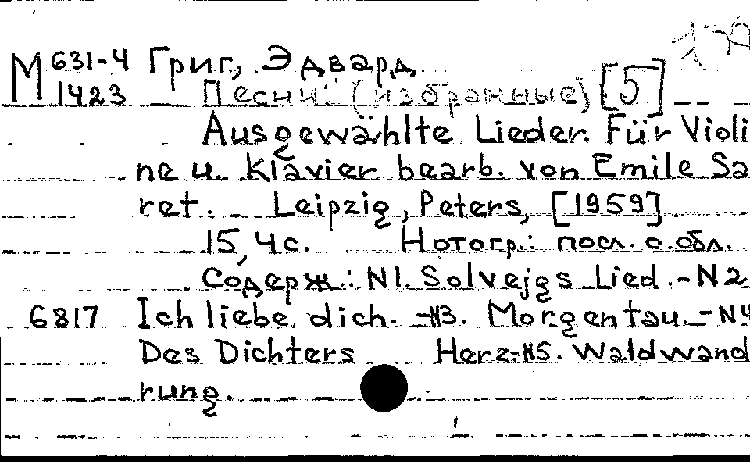 М 631-4 Григ, Эдвард
1423 Песни (избранные) [5]
Ausgewählte Lieder. Für Violi
ne u. Klavier bearb. von Emile Sa
ret. Leipzig, Peters, [1959]
15, 4 с. Нотогр.: посл. с. обл.
Содерж.: N1. Solvejgs Lied. - N2
6817 Ich liebe dich. - N3. Morgentau. - N4
Des Dichters Herz. - N5. Waldwand
rung.